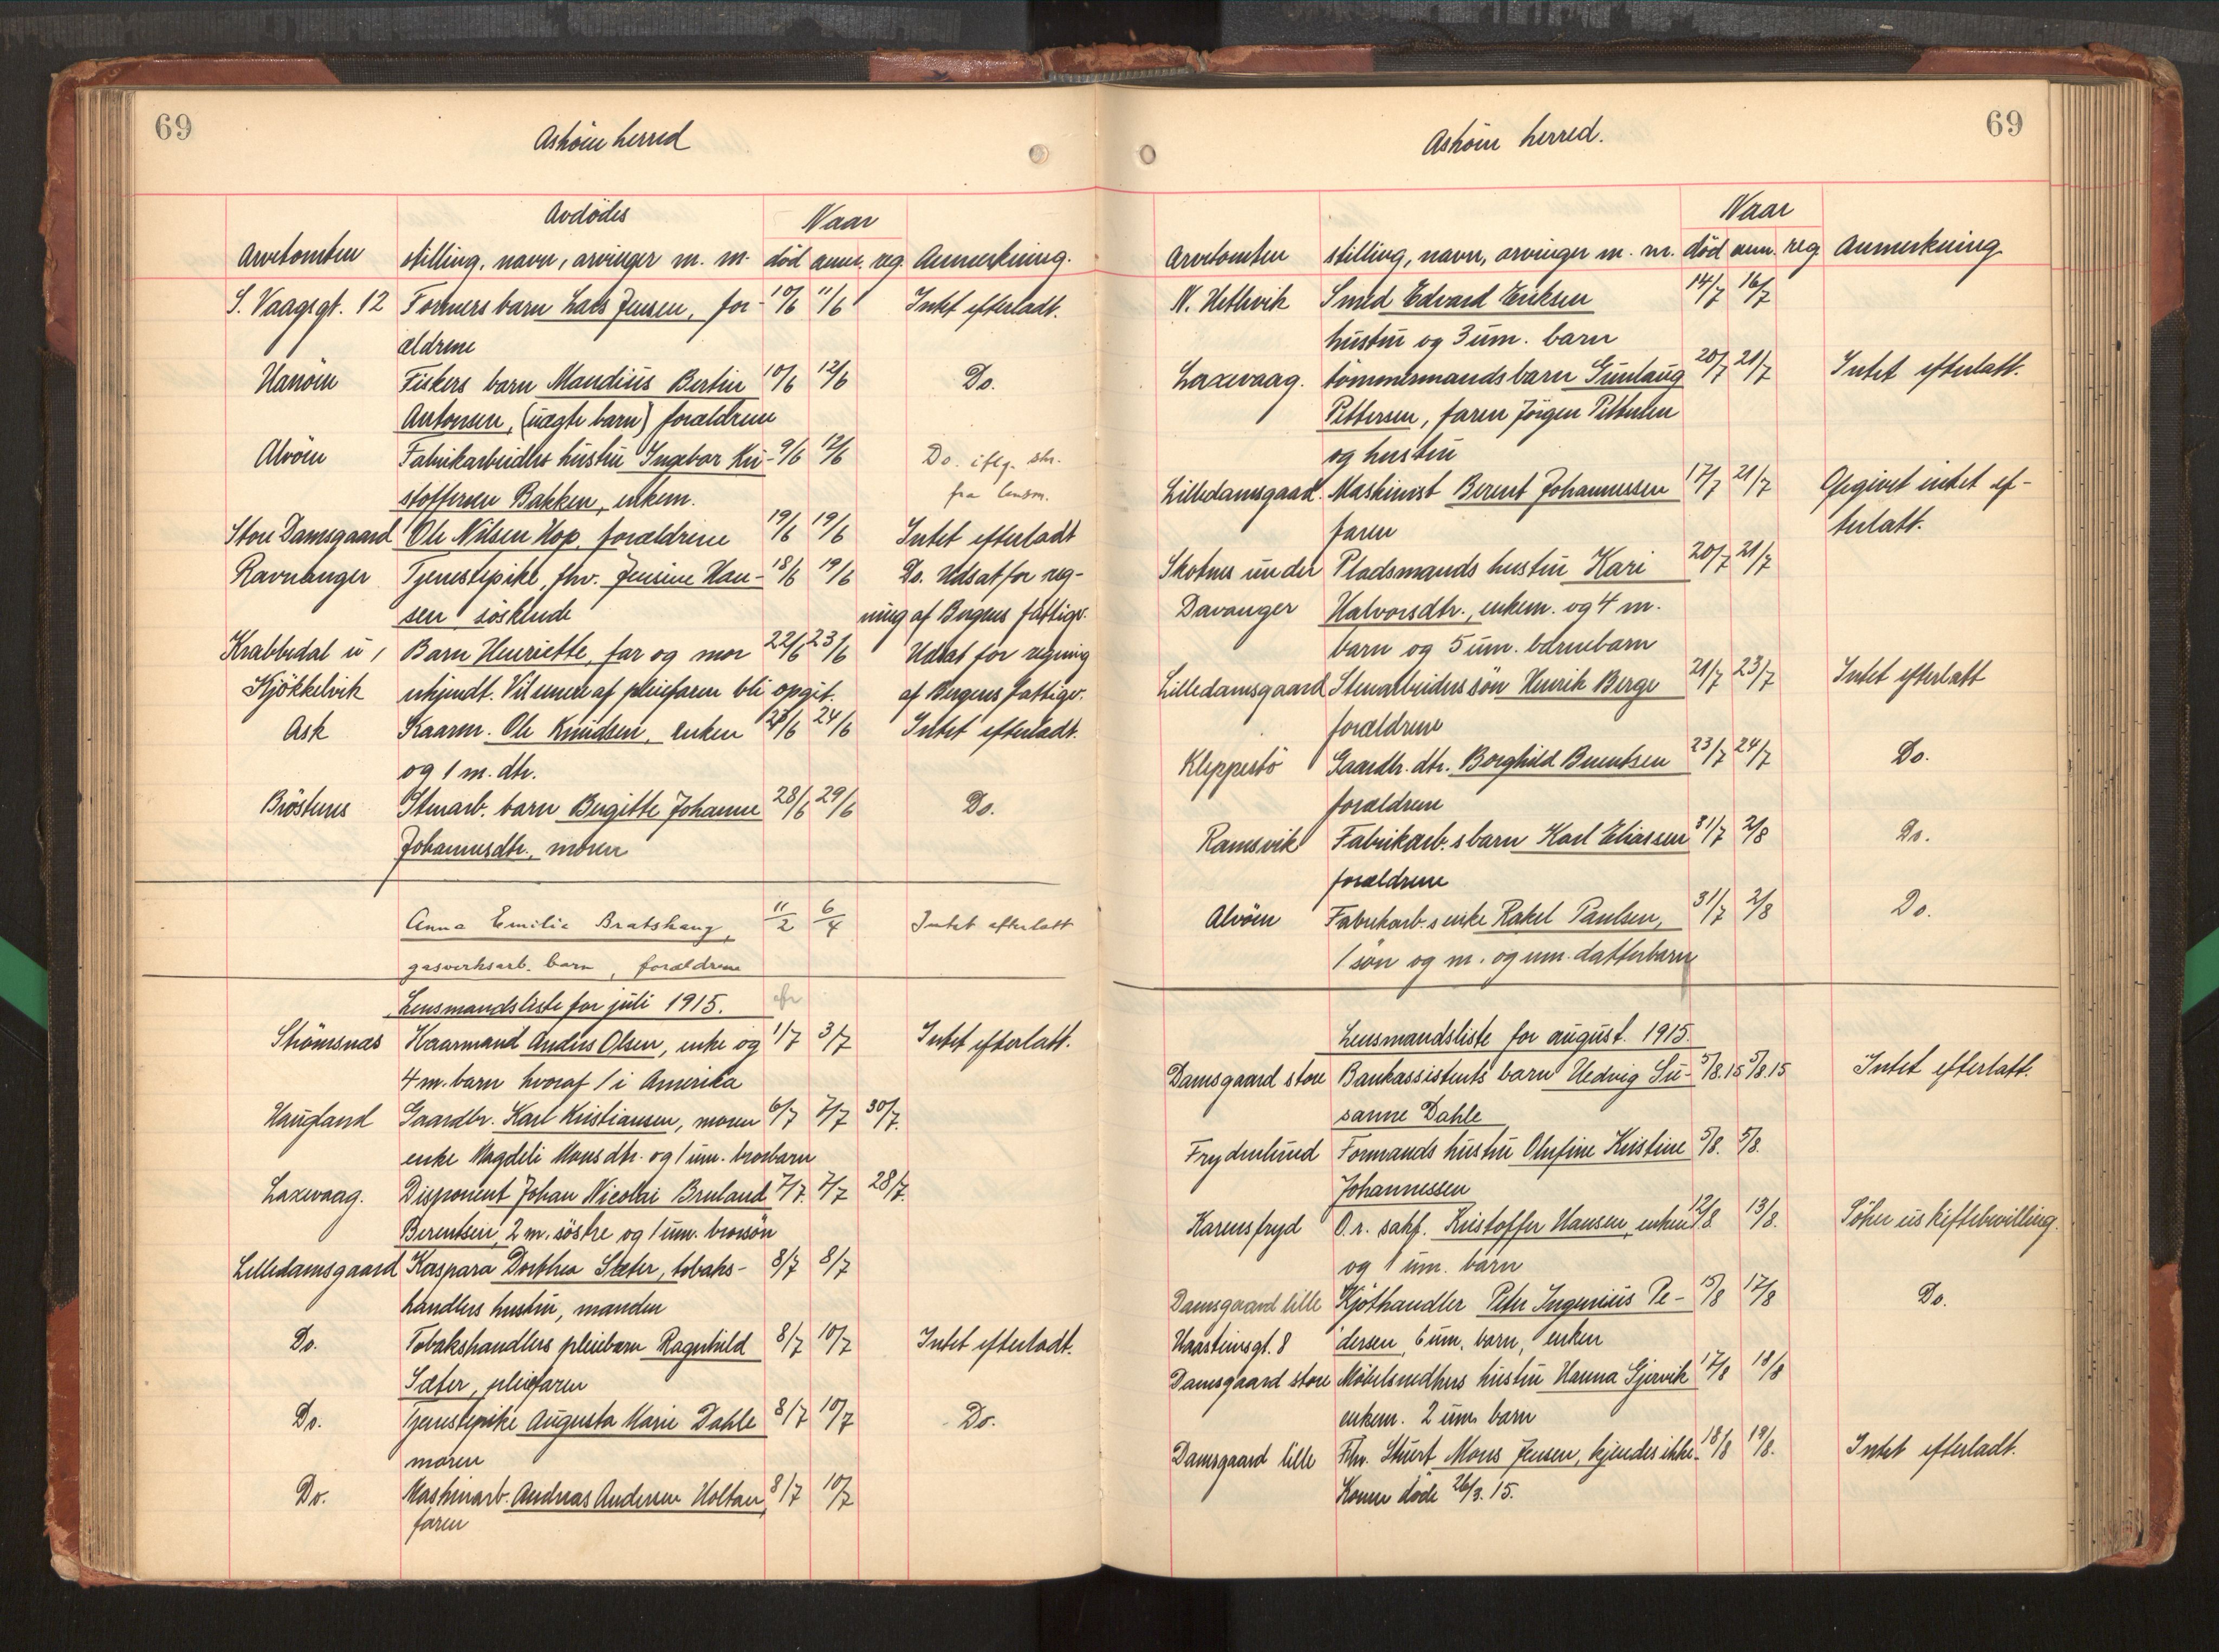 69
Askøin herred
Avdødes
Naar
Arvetomten stilling, navn, arvinger m. m. død anm. reg. Anmerkning.
S. Vaagsgt. 12 Formers barn Lars Jensen, for- 10/6 11/6 Intet efterladt.
ældrene
Hanøin Fiskers barn Mandius Bertin 10/6 12/6 Do.
Antonsen, (uægte barn) forældrene
Alvøen Fabrikarbeiders hustru Ingebor Kri- 9/6 12/6 Do. iflg. skr.
stoffersen Bakken, enkem. fra lensm.
Store Damsgaard Ole Nilsen Hop, forældrene 19/6 19/6 Intet efterladt
Ravnanger Tjenestepike, fhv. Jensine Han- 18/6 19/6 Do. Udsat for reg-
sen søskende ning af Bergens fattigv.
Krabbedal u/ Barn Henriette, far og mor 22/6 23/6 Udsat for regning
Kjøkkelvik ukjendt. Vil senere af pleiefaren bli opgit. af Bergens fattigv.
Ask Kaarm. Ole Knudsen, enken 23/6 24/6 Intet efterladt.
og 1 m. dtr.
Brøstenes Stenarb. barn Birgitte Johanne 28/6 29/6 Do.
Johannesdtr., moren
Anna Emilie Bratshaug, 11/2 6/4 Intet efterlatt
gasverksarb. barn, forældrene
Lensmandsliste for juli 1915.
Strømsnæs Kaarmand Anders Olsen, enke og 1/7 3/7 Intet efterlatt.
4 m. barn hvoraf 1 i Amerika
Haugland Gaardbr. Karl Kristiansen, moren 6/7 7/7 30/7.
enke Magdeli Monsdtr. og 1 um. brorbarn
Laxevaag. Disponent Johan Nicolai Bruland 7/7. 7/7 28/7.
Berentsen, 2 m. søstre og 1 um. brorsøn
Lilledamsgaard Kaspara Dorthea Sæter, tobaks- 8/7 8/7
handlers hustru, manden
Do. Tobakshandlers pleiebarn Ragnhild 8/7 10/7 Intet efterladt.
Sæter, pleiefaren
Do. Tjenestepike Augusta Marie Dahle 8/7 10/7 Do.
moren
Do. Maskinarb. Andreas Andersen Holtan, 8/7 10/7
faren
69
Askøin herred.
Naar
Arvetomten stilling, navn, arvinger m. m. død anm. reg. Anmerkning
N. Hetlevik Smed Edvard Eriksen 14/7 16/7
hustru og 3 um. barn
Laxevaag. tømmermands barn Gunlaug 20/7 21/7 Intet efterlatt.
Pettersen, faren Jørgen Pettersen
og hustru
Lilledamsgaard. Maskinist Berent Johannessen 17/7 21/7 Opgivet intet ef-
faren terlatt.
Skotnes under Pladsmands hustru Kari 20/7 21/7
Davanger Halvorsdtr., enkem. og 4 m.
barn og 5 um. barnebarn
Lilledamsgaard Stenarbeiders søn Henrik Berge 21/7 23/7 Intet efterlatt
forældrene
Kleppestø Gaardbr. dtr. Borghild Berentsen 23/7 24/7 Do.
forældrene
Ramsvik Fabrikarb.s barn Karl Eliassen 31/7 2/8 Do.
forældrene
Alvøen Fabrikarb.s enke Rakel Paulsen, 31/7 2/8 Do.
1 søn og m. og um. datterbarn
Lensmandsliste for august. 1915.
Damsgaard store Bankassistents barn Hedvig Su- 5/8.15 5/8.15 Intet efterlatt.
sanne Dahle
Frydenlund Formands hustru Olufine Kristine 5/8. 5/8.
Johannessen
Karensfryd O.r. sakf. Kristoffer Hansen, enken 12/8 13/8. Søker uskiftebevilling.
og 1 um. barn
Damsgaard lille Kjøthandler Peter Ingenius Pe- 15/8 17/8 Do.
Haasteinsgt. 8 dersen, 6 um. barn, enken
Damsgaard store Møbelsnedkers hustru Hanna Gjervik 17/8 18/8
enkem. 2 um. barn
Damsgaard lille Fhv. Stuert Mons Jensen, kjendes ikke. 18/8 19/8. Intet efterladt.
Konen døde 26/3. 15.